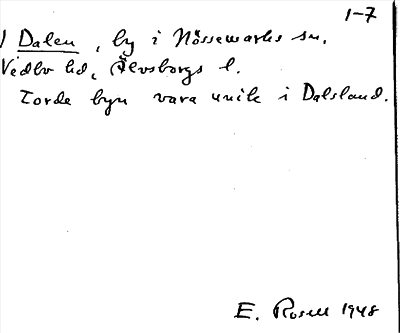 1-7
1 Dalen, by i Nössemarks sn.
Vedbo hd, Älvsborgs l.
Torde byn vara unik i Dalsland.
E. Rosell 1948